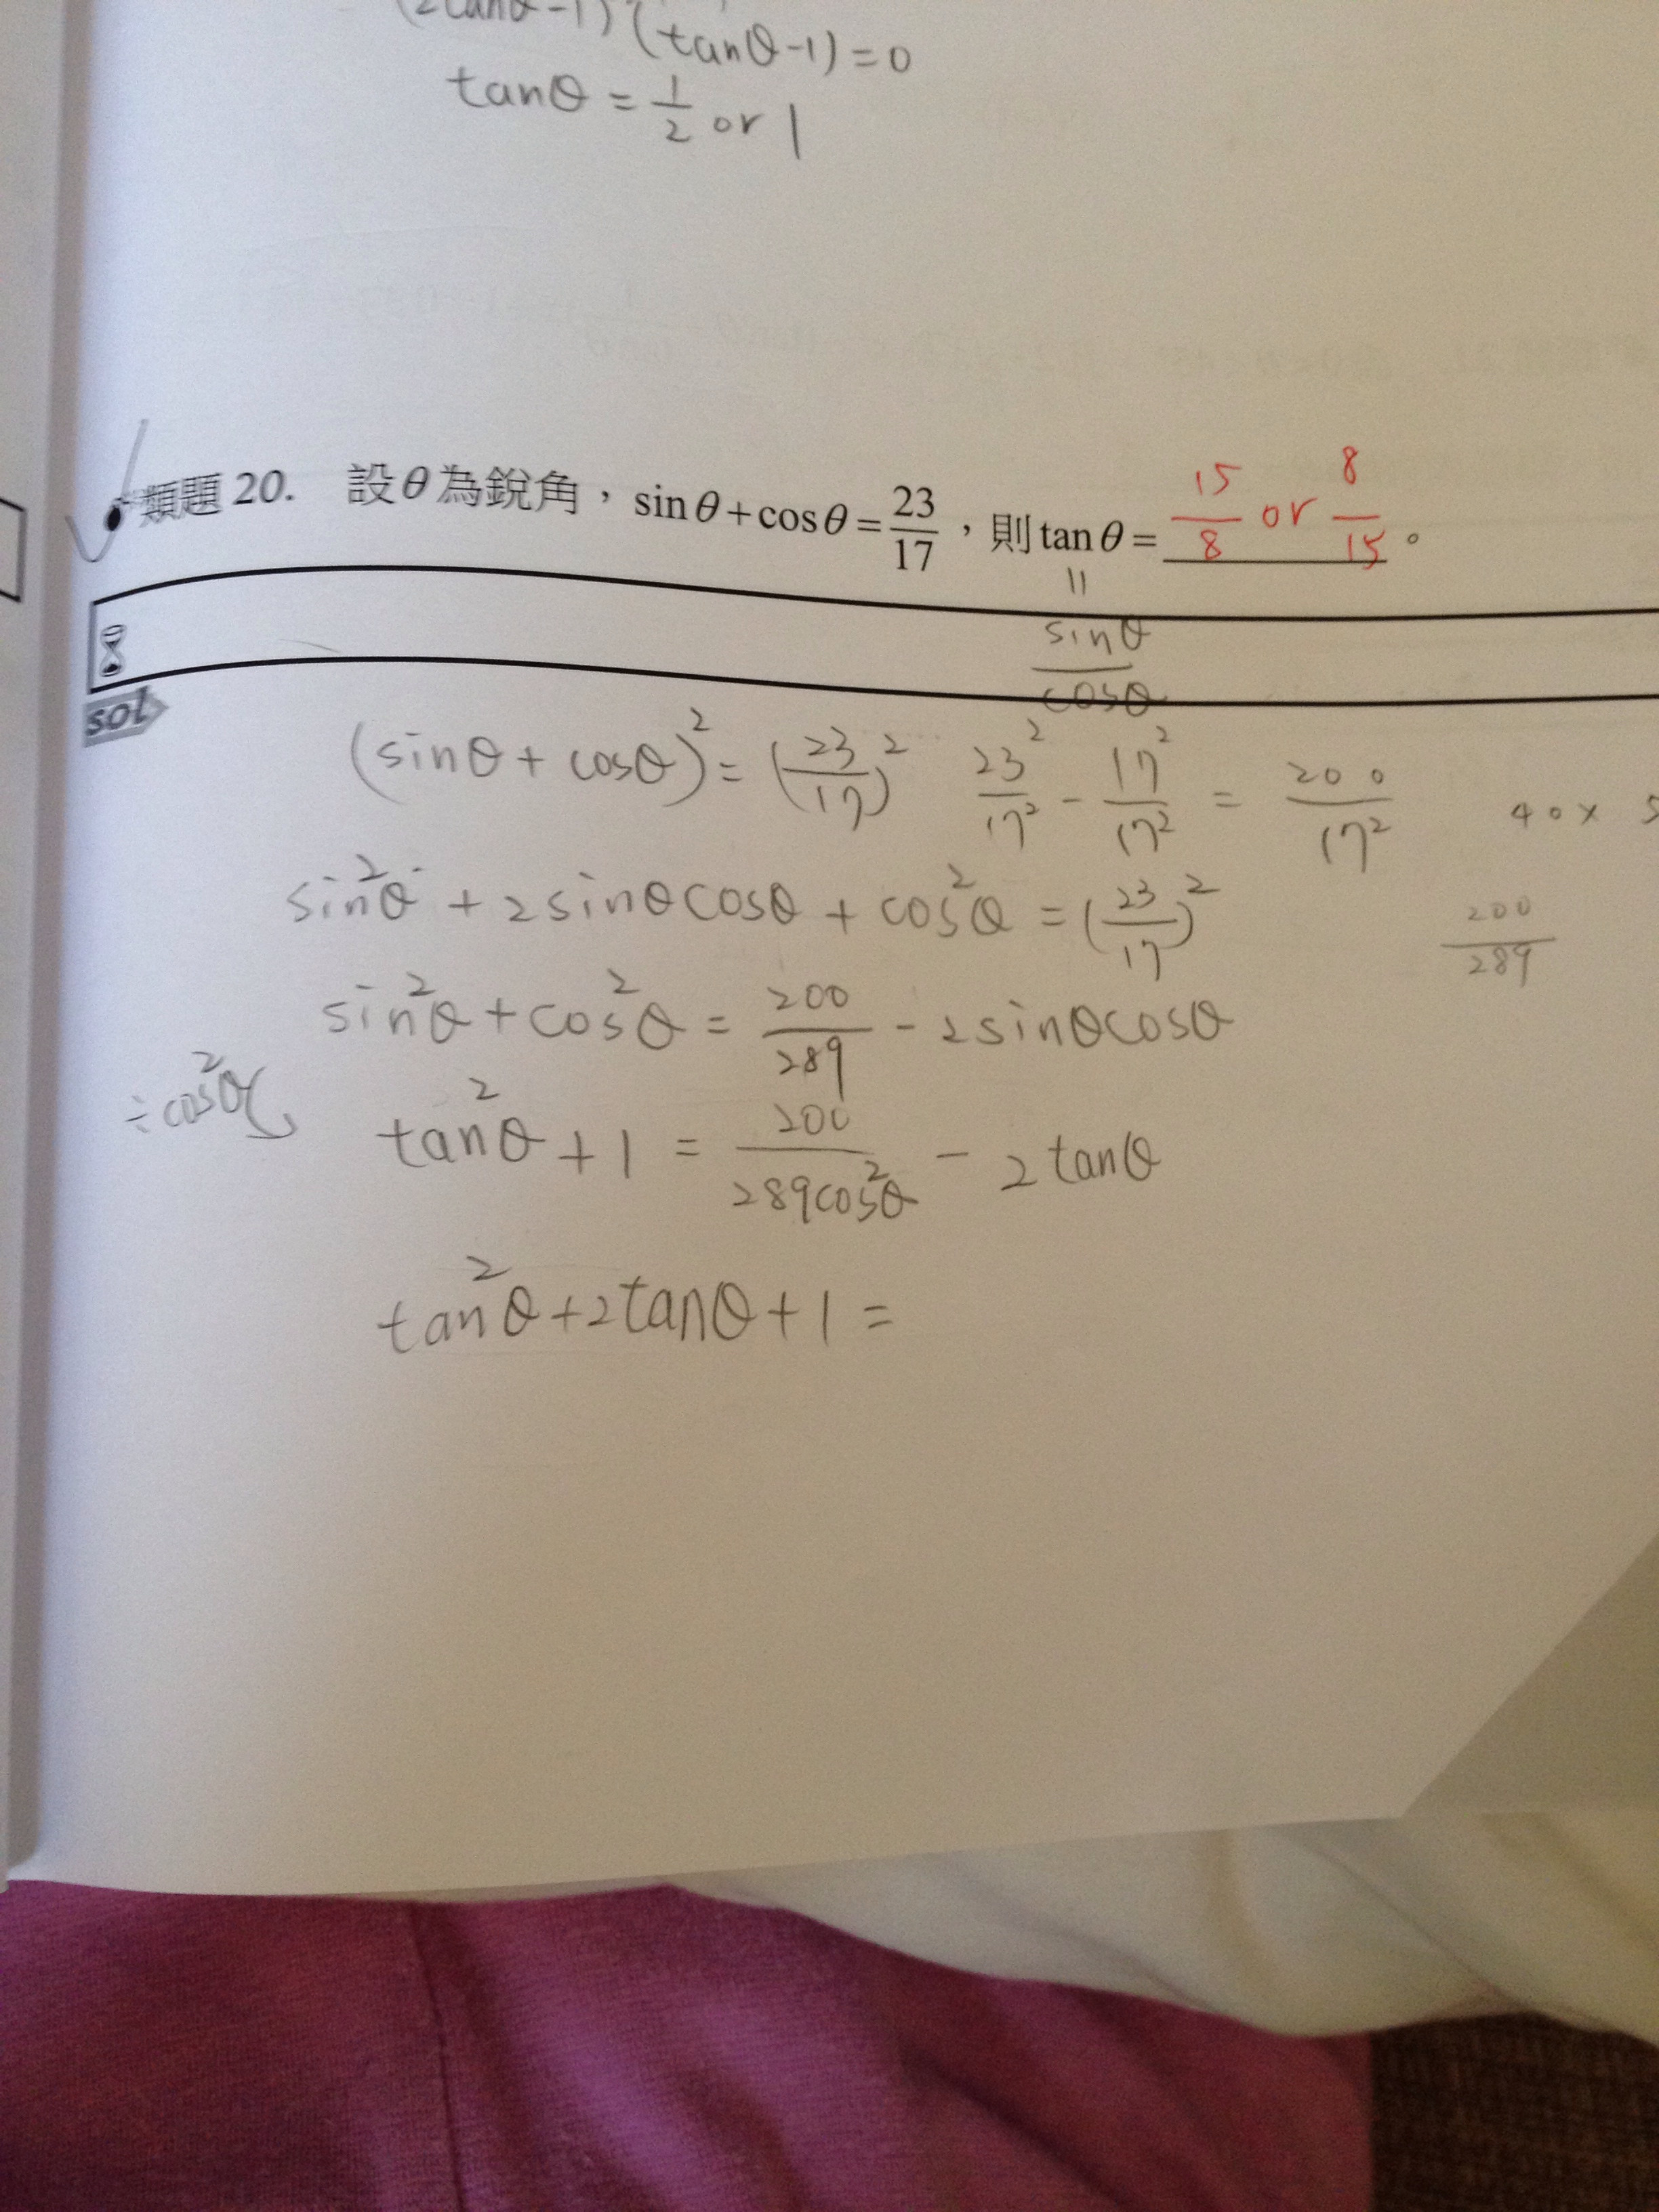 (2tanθ-1)(tanθ-1)=0
tanθ = 1/2 or 1
類題 20. 設θ為銳角，sinθ+cosθ=23/17，則tanθ= 15/8 or 8/15 。
=
sinθ/cosθ
sol
(sinθ + cosθ)² = (23/17)² 23²/17² - 17²/17² = 200/17² 40×
sin²θ + 2sinθcosθ + cos²θ = (23/17)² 200/289
sin²θ + cos²θ = 200/289 - 2sinθcosθ
÷cos²θ
tan²θ + 1 = 200/289cos²θ - 2tanθ
tan²θ+2tanθ+1 =